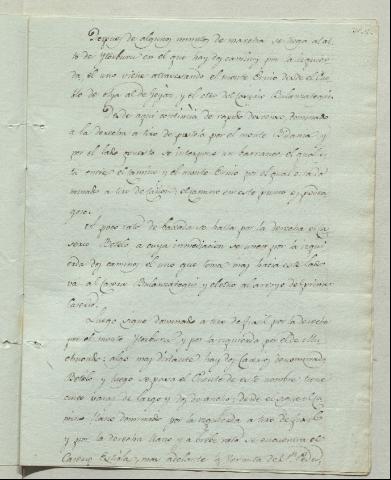 Despues de algunos minutos de marcha se llega al al-
to de Yturburu en el que hay dos caminos por la izquier-
da, el uno viene atravesando el monte Ernio desde el Pue-
blo de y el otro del Caserio Bulanzategui
Desde aqui continua de repecho dominado
a la derecha a tiro de pistola por el monte Bidania y
por el lado opuesto se interpone un barranco el qual es-
tá entre el camino y el monte Ernio por el qual está do-
minado a tiro de cañon: el camino en este punto es pedra-
goso.
A poco rato de baxada se halla por la derecha el Ca-
serio Botelo a cuya inmediacion se unen por la izqui-
erda dos caminos el uno que toma mas hacia este lado
va al Caserio Bulanzategui y el otro al arroyo de primer
Caserio.
Luego sigue dominado a tiro de fusil por la derecha
por el monte Yturburu y por la izquierda por el de
algo mas distante hay dos Caserios denominados
Botelo y luego se pasa el Puente de este nombre: tiene
cinco varas de largo y dos de ancho; desde el sigue el ca-
mino llano dominado por la izquierda a tiro de fusil
y por la derecha llano y a breve rato se encuentra el
Caserio mas adelante la Hermita de Sn. Pedro,